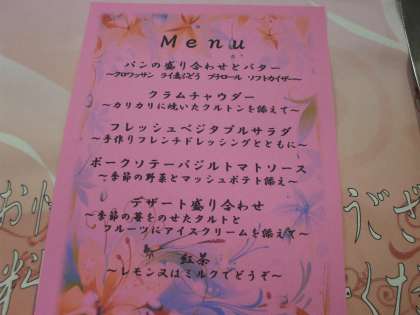 Menu
パンの盛り合わせとバター
～クロワッサン ライ麦ぶどう プチロール ソフトカイザー～
クラムチャウダー
～カリカリに焼いたクルトンを添えて～
フレッシュベジタブルサラダ
～手作りフレンチドレッシングとともに～
ポークソテーバジルトマトソース
～季節の野菜とマッシュポテト添え～
デザート盛り合わせ
～季節の苺をのせたタルトと
フルーツにアイスクリームを添えて～
紅茶
～レモン又はミルクでどうぞ～